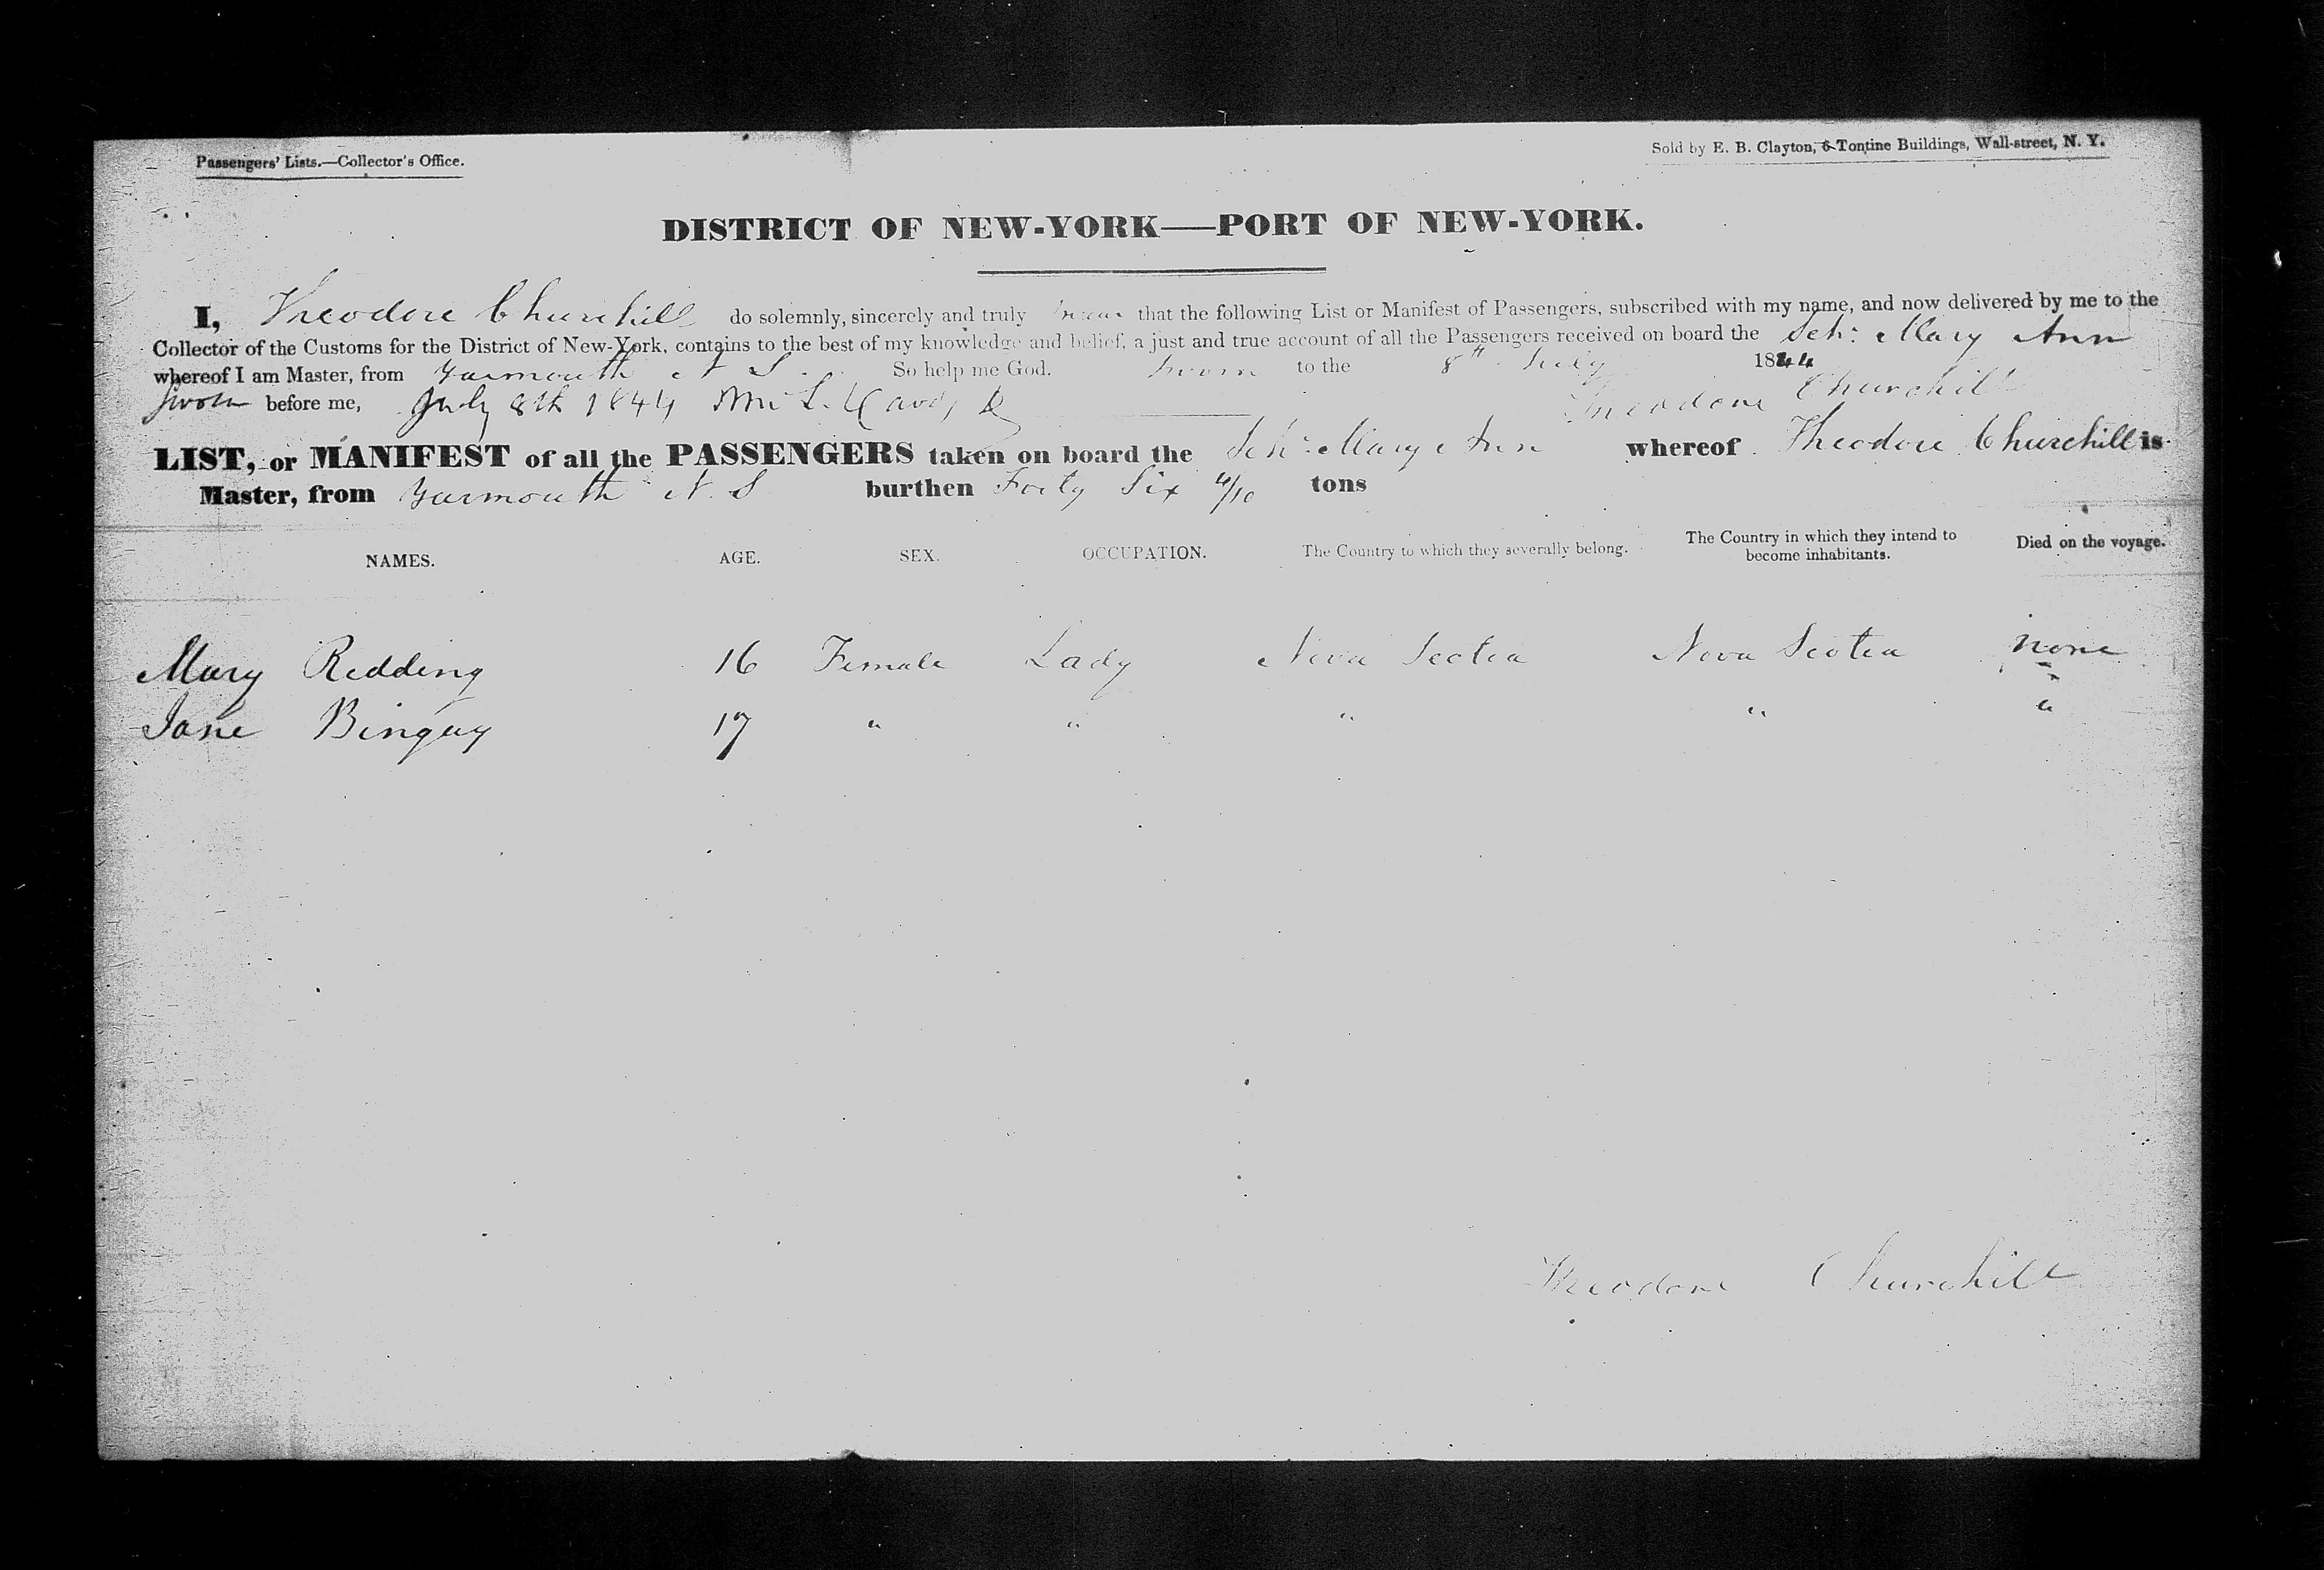 Passengers' Lists.—Collector's Office.
Sold by E. B. Clayton, 6 Tontine Buildings, Wall-street, N. Y.
DISTRICT OF NEW-YORK—PORT OF NEW-YORK.
I, Theodore Churchill do solemnly, sincerely and truly swear that the following List or Manifest of Passengers, subscribed with my name, and now delivered by me to the
Collector of the Customs for the District of New-York, contains to the best of my knowledge and belief, a just and true account of all the Passengers received on board the Schr: Mary Ann
whereof I am Master, from Yarmouth N S. So help me God. Sworn to the 8th July 1844
Sworn before me, July 8th 1844 Theodore Churchill
LIST, or MANIFEST of all the PASSENGERS taken on board the Schr: Mary Ann whereof Theodore Churchill is
Master, from Yarmouth N. S burthen Forty Six 4/10 tons
NAMES. AGE. SEX. OCCUPATION. The Country to which they severally belong. The Country in which they intend to become inhabitants. Died on the voyage.
Mary Redding 16 Female Lady Nova Scotia Nova Scotia none
Jane Binguy 17 " " " " "
Theodore Churchill